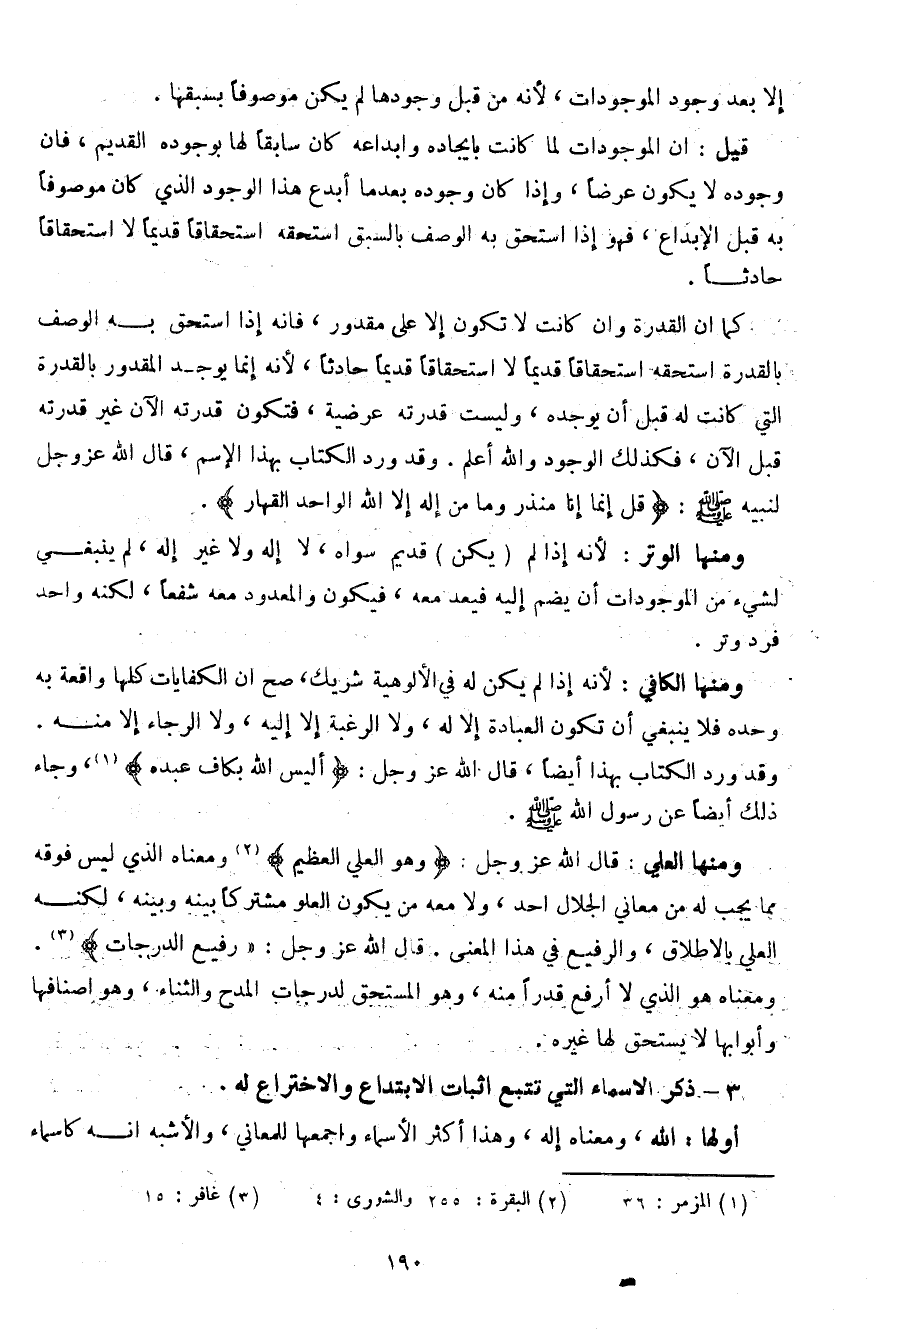 إلا بعد وجود الموجودات ، لأنه من قبل وجودها لم يكن موصوفاً بسبقها .
قيل : ان الموجودات لما كانت بايجاده وابداعه كان سابقاً لها بوجوده القديم ، فان
وجوده لا يكون عرضاً ، وإذا كان وجوده بعدما أبدع هذا الوجود الذي كان موصوفاً
به قبل الإبداع ، فهو إذا استحق به الوصف بالسبق استحقه استحقاقاً قديماً لا استحقاقاً
حادثــاً .
كما ان القدرة وان كانت لا تكون إلا على مقدور ، فانه إذا استحق بــه الوصف
بالقدرة استحقه استحقاقاً قديماً لا استحقاقاً قديماً حادثاً ، لأنه إنما يوجـد المقدور بالقدرة
التي كانت له قبل أن يوجده ، وليست قدرته عرضية ، فتكون قدرته الآن غير قدرته
قبل الآن ، فكذلك الوجود والله أعلم . وقد ورد الكتاب بهذا الإسم ، قال الله عز وجل
لنبيه ﷺ : ﴿ قل إنما انا منذر وما من إله إلا الله الواحد القهار ﴾ .
ومنها الوتر : لأنه إذا لم ( يكن ) قديم سواه ، لا إله ولا غير إله ، لم ينبغــي
لشيء من الموجودات أن يضم إليه فيعد معه ، فيكون والمعدود معه شفعاً ، لكنه واحد
فرد وتر .
ومنها الكافي : لأنه إذا لم يكن له في الألوهية شريك ، صح ان الكفايات كلها واقعة به
وحده فلا ينبغي أن تكون العبادة إلا له ، ولا الرغبة إلا إليه ، ولا الرجاء إلا منــه .
وقد ورد الكتاب بهذا أيضاً ، قال الله عز وجل : ﴿ أليس الله بكاف عبده ﴾ (١) ، وجاء
ذلك أيضاً عن رسول الله ﷺ .
ومنها العلي : قال الله عز وجل : ﴿ وهو العلي العظيم ﴾ (٢) ومعناه الذي ليس فوقه
مما يجب له من معاني الجلال احد ، ولا معه من يكون العلو مشتركاً بينه وبينه ، لكنــه
العلي بالاطلاق ، والرفيع في هذا المعنى . قال الله عز وجل : « رفيع الدرجات ﴾ (٣) .
ومعناه هو الذي لا أرفع قدراً منه ، وهو المستحق لدرجات المدح والثناء ، وهو اصنافها
وأبوابها لا يستحق لها غيره .
٣ – ذكر الاسماء التي تتبع اثبات الابتداع والاختراع له .
أولها : الله ، ومعناه إله ، وهذا أكثر الأسماء واجمعها للمعاني ، والأشبه انــه كاسماء
(١) المزمر : ٣٦ (٢) البقرة : ٢٥٥ والشورى : ٤ (٣) غافر : ١٥
١٩٠